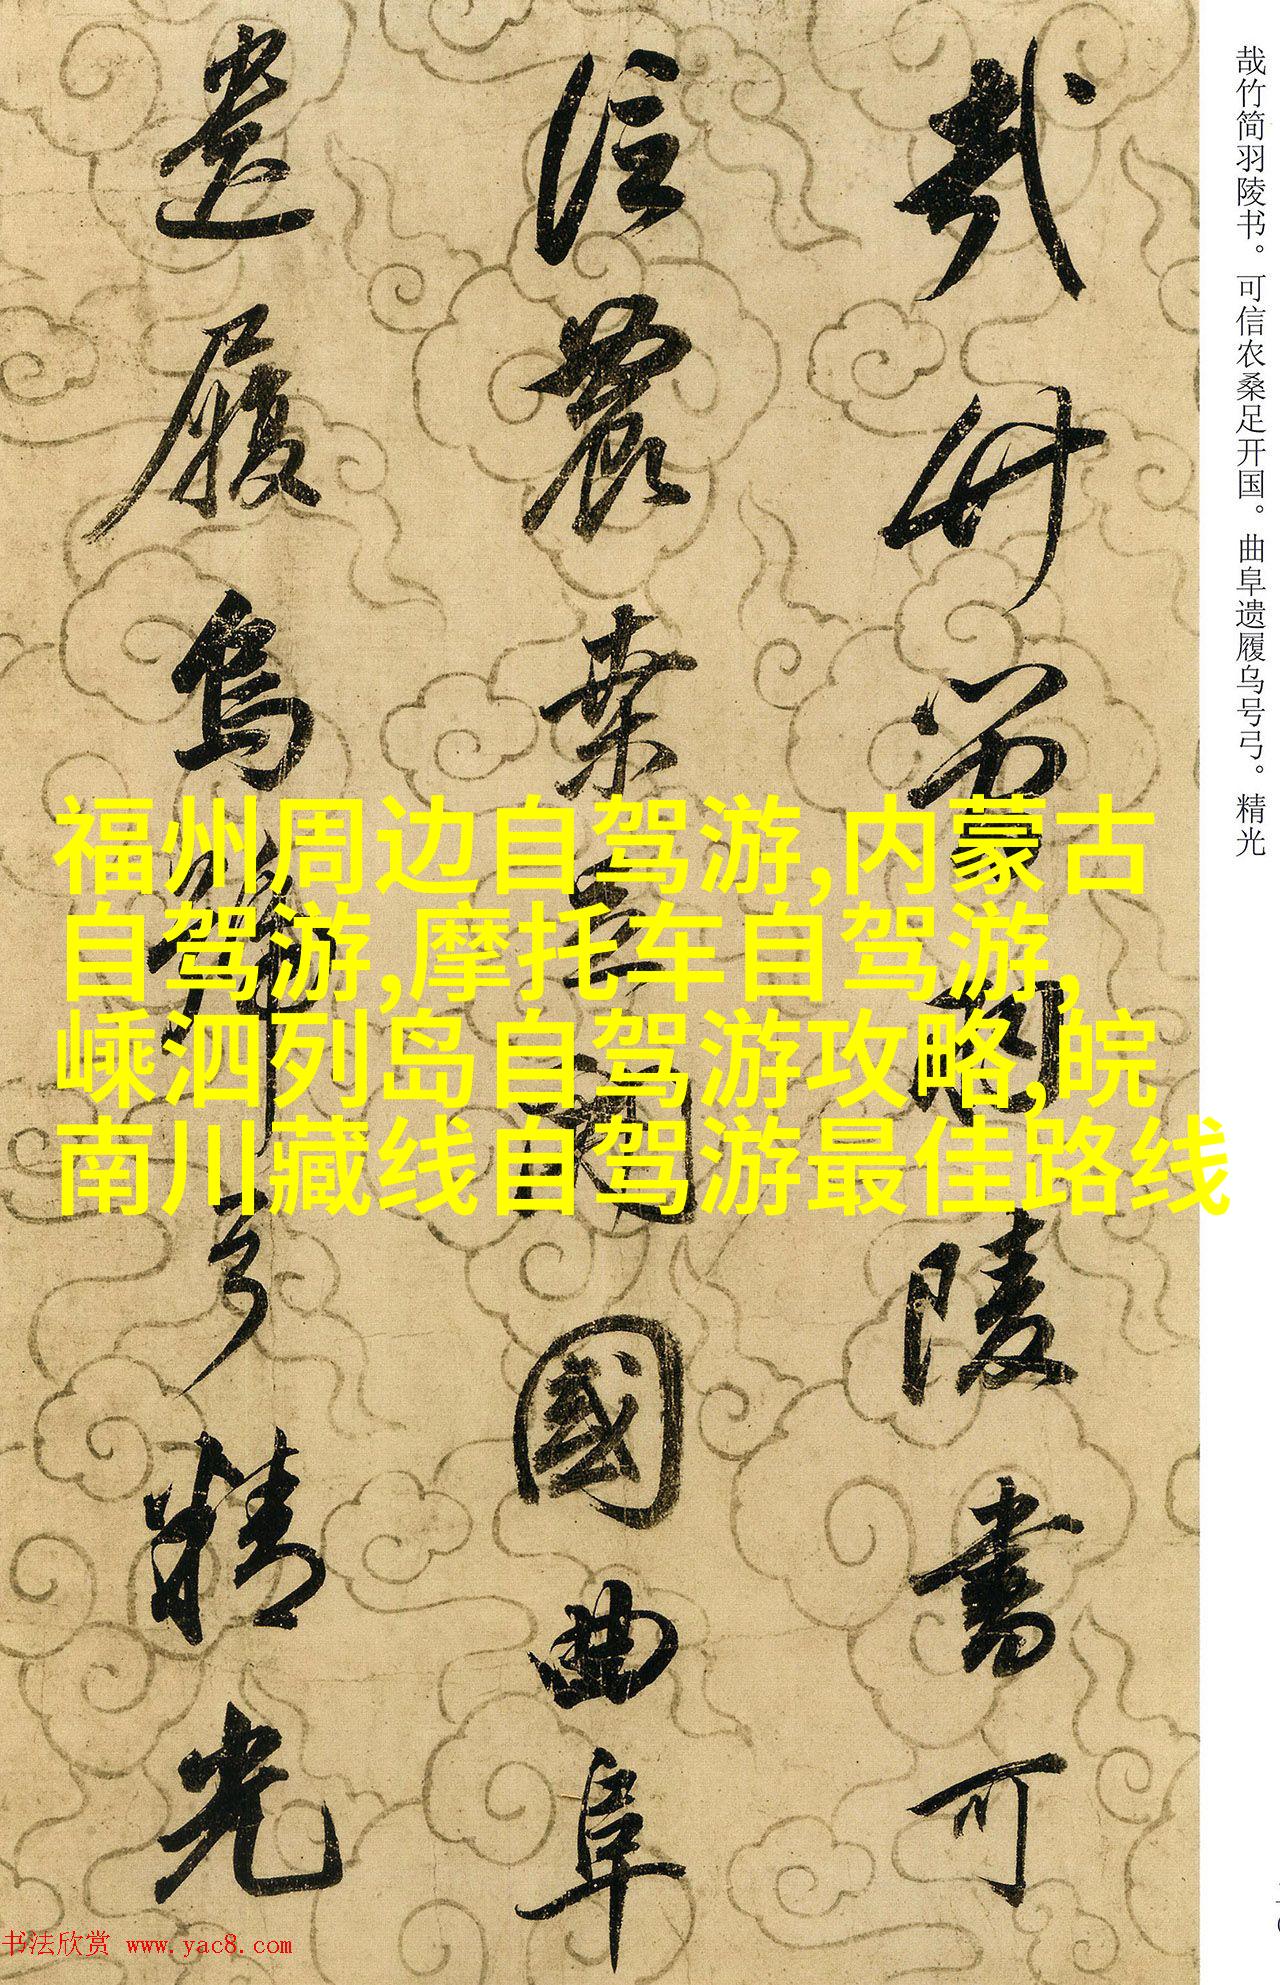 哉竹简羽陵书。可信农桑足开国。曲阜遗履乌号弓。精光
哉竹簡羽陵書可
信農桒足開國曲阜
遺履烏號弓精光
福州周边自驾游,内蒙古
自驾游,摩托车自驾游,
嵊泗列岛自驾游攻略,皖
南川藏线自驾游最佳路线
书法欣赏 www.yac8.com